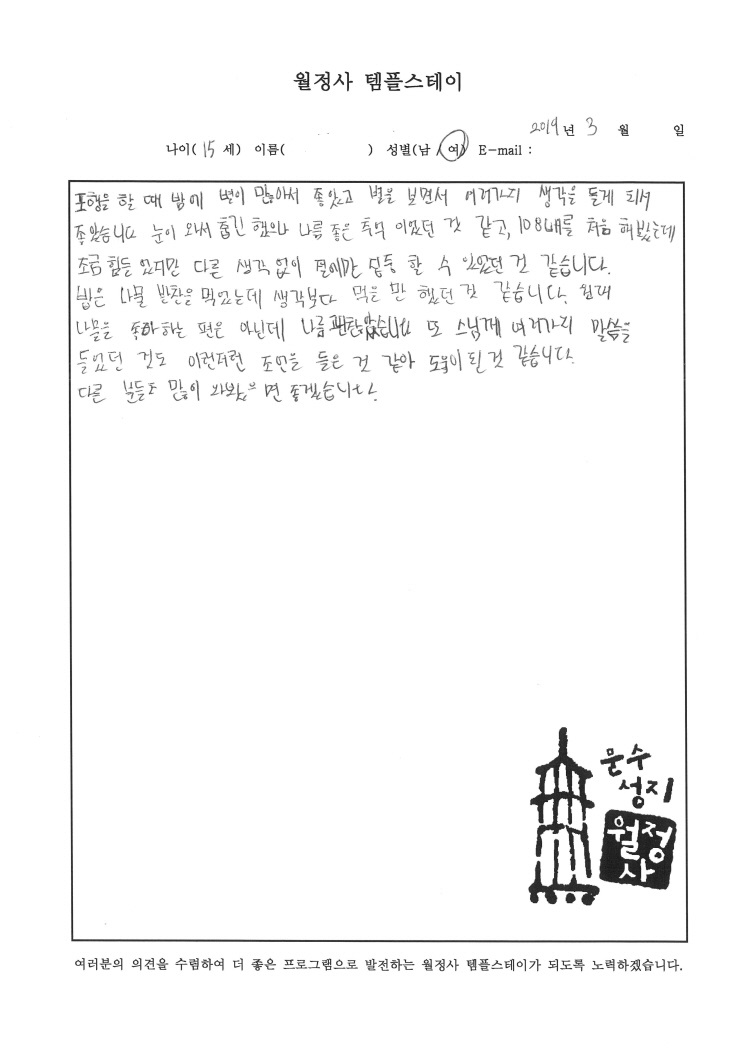 월정사 템플스테이
2019년 3 월 일
나이( 15 세) 이름( ) 성별(남 / 여) E-mail :
포행을 할 때 밤에 별이 많아서 좋았고 별을 보면서 여러가지 생각을 들게 되서
좋았습니다 눈이 와서 춥긴 했으나 나름 좋은 추억 이었던 것 같고, 108배를 처음 해봤는데
조금 힘들 었지만 다른 생각 없이 절에만 집중 할 수 있었던 것 같습니다.
밥은 나물 반찬을 먹었는데 생각보다 먹을 만 했던 것 같습니다. 원래
나물을 좋아하는 편은 아닌데 나름 괜찮았습니다 또 스님께 여러가지 말씀을
들었던 것도 이런저런 조언을 들은 것 같아 도움이 된 것 같습니다.
다른 분들도 많이 와봤으면 좋겠습니다.
문수
성지
월정
사
여러분의 의견을 수렴하여 더 좋은 프로그램으로 발전하는 월정사 템플스테이가 되도록 노력하겠습니다.